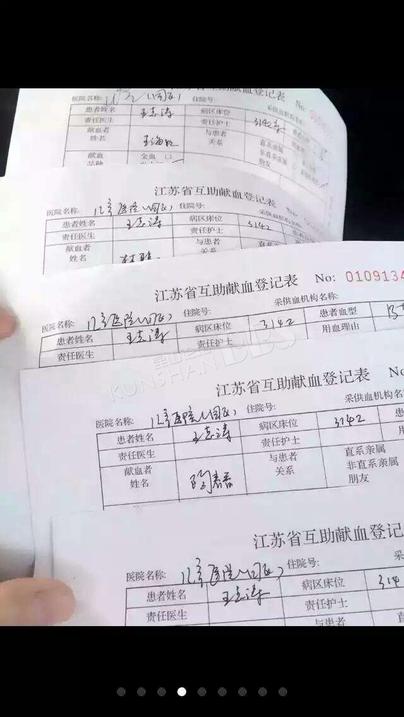 江苏省互助献血登记表
医院名称: 儿童医院(园区) 住院号:
患者姓名 王志涛 病区床位 3142
责任医生 责任护士
献血者 与患者 直系亲属
姓名 关系 非直系亲属
朋友
献血 全血 口
江苏省互助献血登记表
医院名称: 儿童医院(园区) 住院号: 采供血
患者姓名 王志涛 病区床位 3142
责任医生 责任护士
献血者 与患者
姓名 关系
江苏省互助献血登记表 No: 0109134
医院名称: 儿童医院(园区) 住院号: 采供血机构名称:
患者姓名 王志涛 病区床位 3142 患者血型
责任医生 责任护士 用血理由
KUNSHAN BBS
江苏省互助献血登记表 No
医院名称: 儿童医院(园区) 住院号: 采供血机
患者姓名 王志涛 病区床位 3142
责任医生 责任护士
献血者 与患者 直系亲属
姓名 关系 非直系亲属
朋友
江苏省互助献血登记表
医院名称: 儿童医院(园区) 住院号:
患者姓名 王志涛 病区床位 314
责任医生 责任护士
与患者